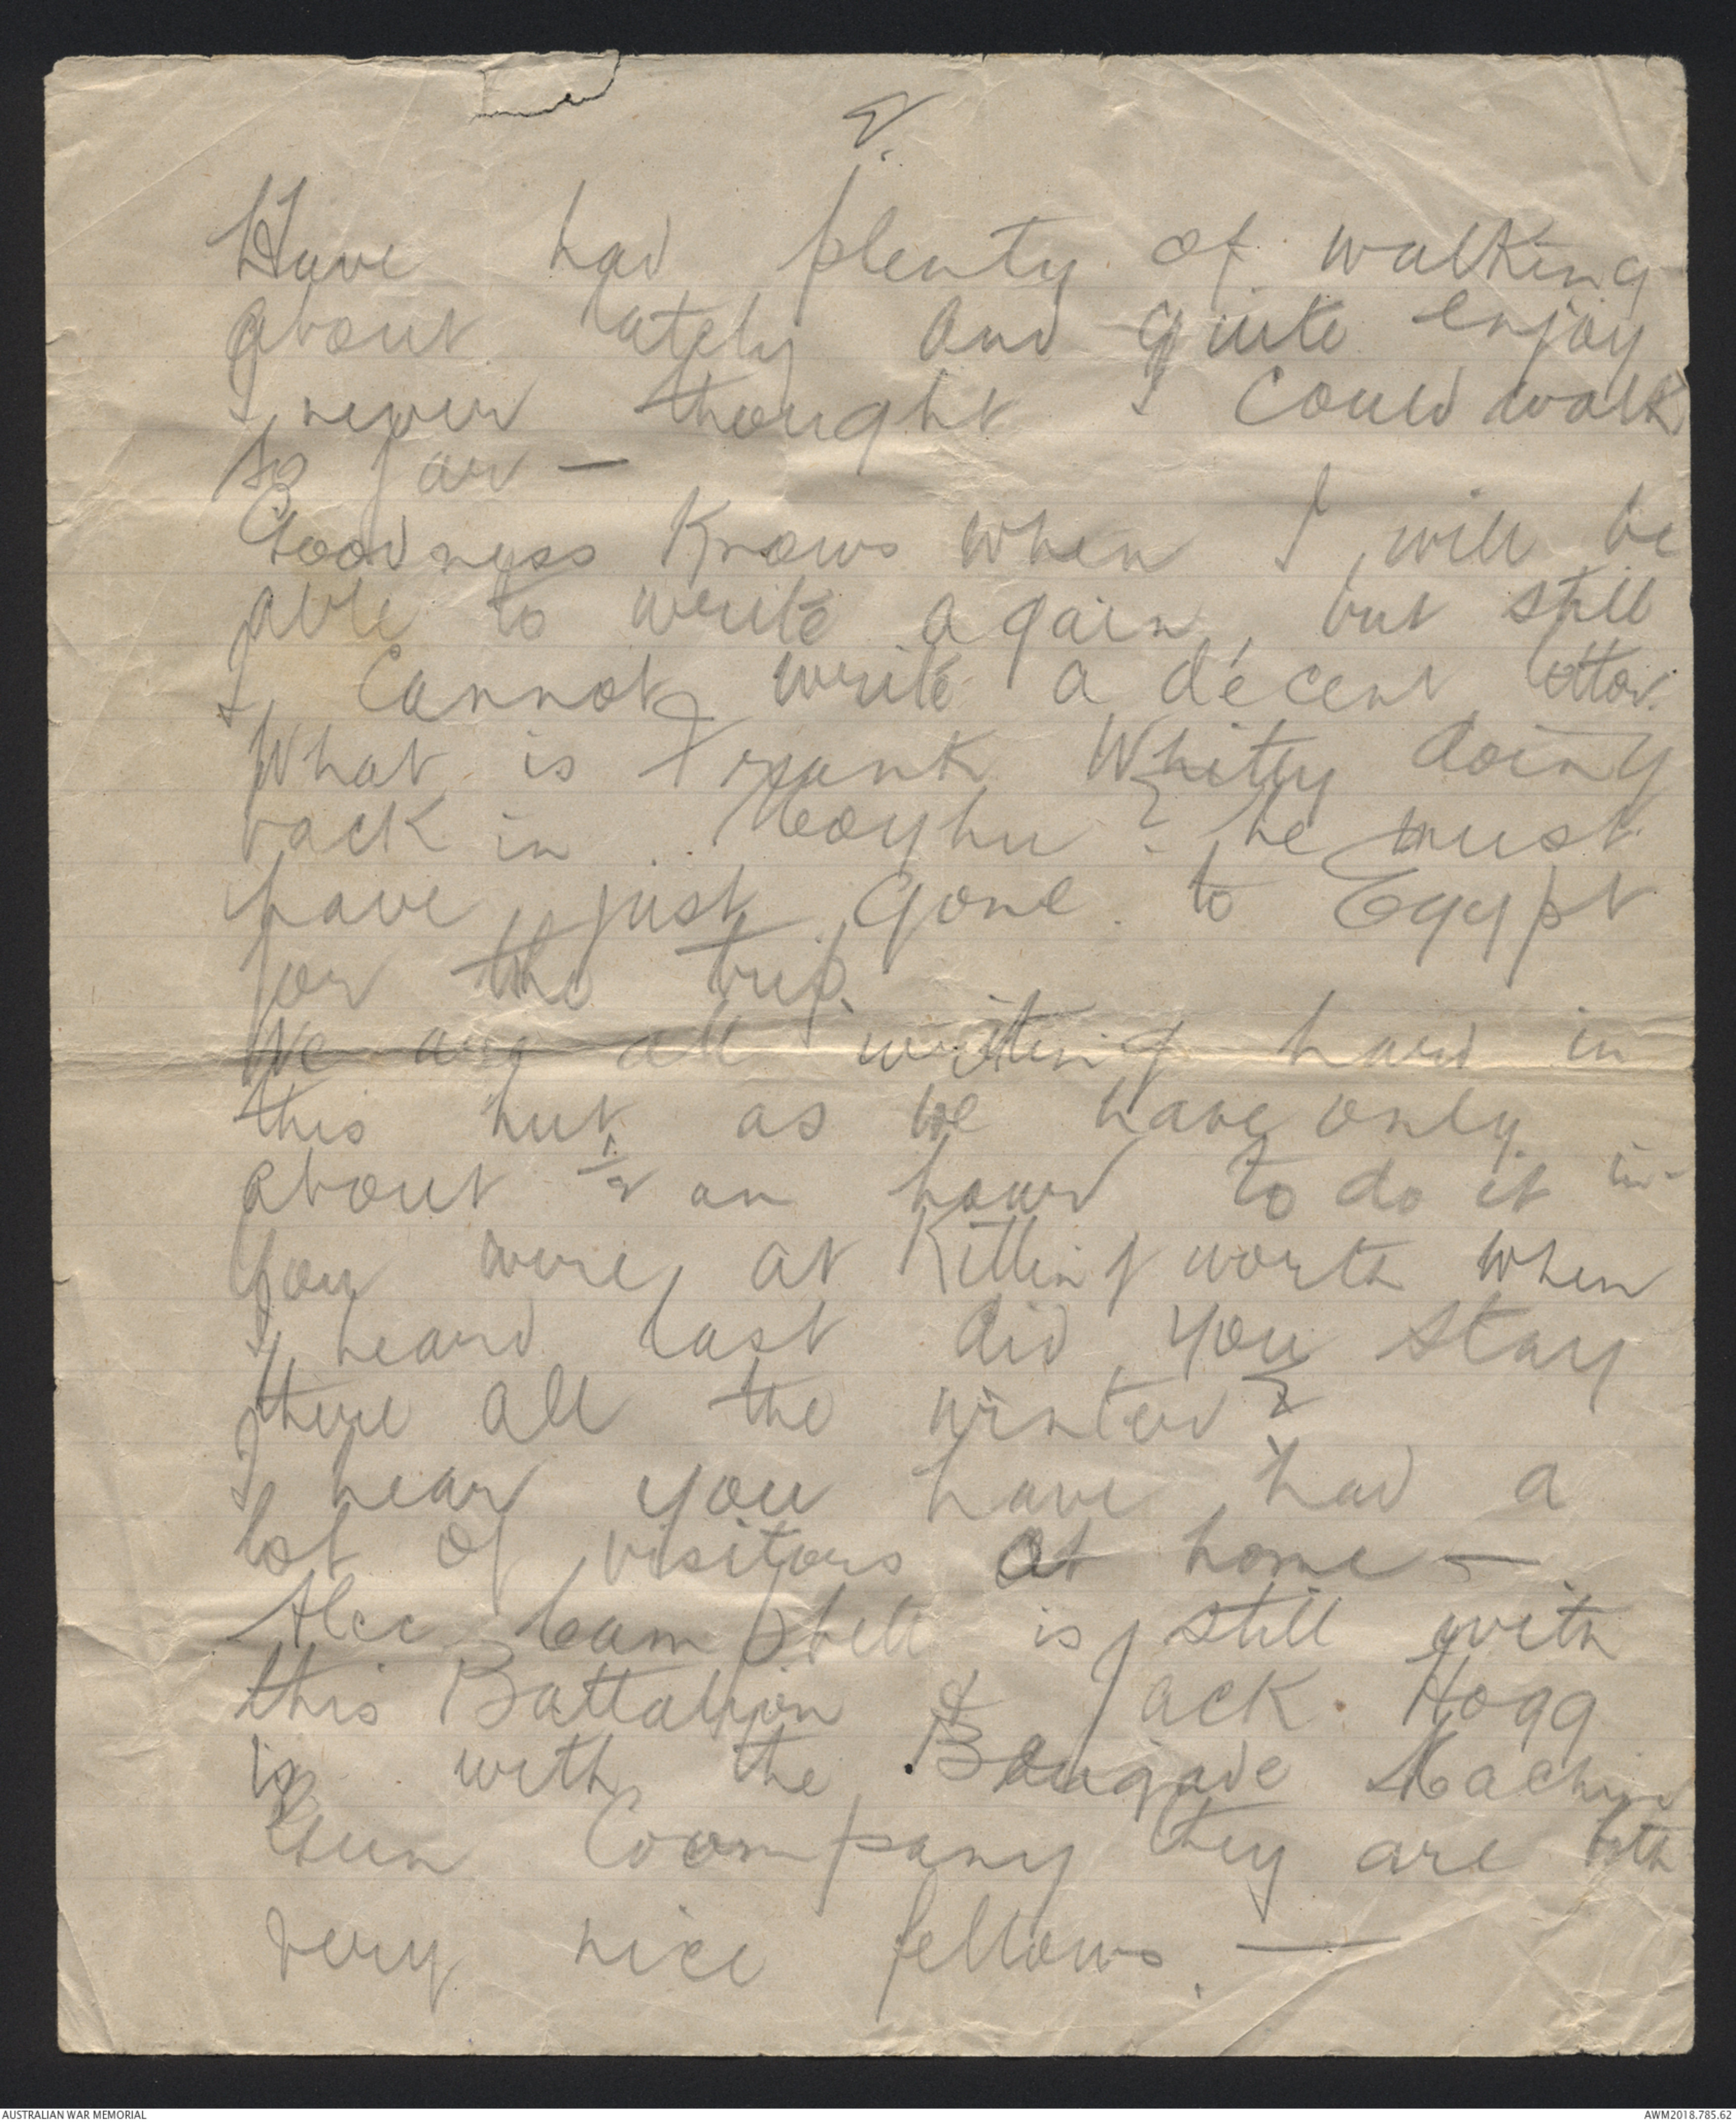 2.
Have had plenty of walking
about lately and quite enjoy
I never thought I could walk
so far —
Goodness knows when I will be
able to write again, but still
I cannot write a decent letter.
What is Frank Whitty doing
back in Moyhu? he must
have just gone to Egypt
for the trip.
We are all writing hard in
this hut as we have only
about 1/2 an hour to do it in-
You were at Killingworth when
I heard last did you stay
there all the winter?
I hear you have had a
lot of visitors at home —
Alec Campbell is still with
this Battalion & Jack Hogg
is with the Brigade Machine
Gun Company they are both
very nice fellows. —
AUSTRALIAN WAR MEMORIAL
AWM2018.785.62